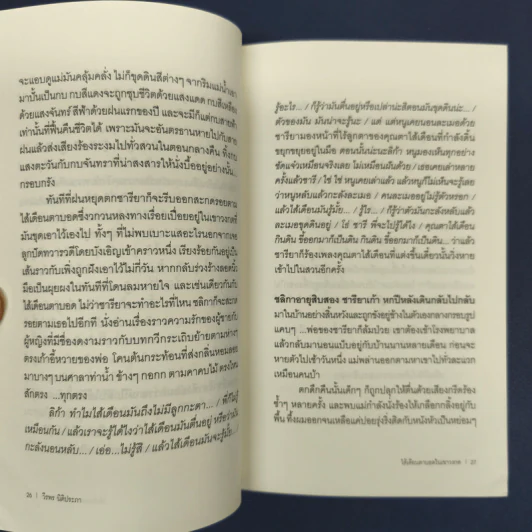 จะแอบดูแม่มันคลุ้มคลั่ง ไม่ก็ขุดดินสีต่างๆ จากริมแม่น้ำเอา
มาปั้นเป็นกบ กบสีแดงจะถูกชุบชีวิตด้วยแสงแดด กบสีเหลือง
ด้วยแสงจันทร์ สีฟ้าด้วยฝนแรกของปี และจะมีก็แต่กบสาย
เท่านั้นที่ฟื้นคืนชีวิตได้ เพราะมันจะอันตรธานหายไปกับสาย
ฝนแล้วส่งเสียงร้องระงมไปทั่วสวนในตอนกลางคืน ทิ้งกบ
แสงตะวันกับกบจันทราที่น่าสงสารให้นั่งบื้ออยู่อย่างนั้น
กรอบกรัง
ทันทีที่ฝนหยุดตกชารียาก็จะรีบออกสะกดรอยตาม
ไส้เดือนตาบอดซึ่งวกวนหลงทางเรื่อยเปื่อยอยู่ในเขาวงกตที่
มันขุดเอาไว้เองไป ทั้งๆ ที่ไม่พบเบาะแสอะไรนอกจาก
ลูกปัดทวารวดีโดยบังเอิญเข้าคราวหนึ่ง เรียงร้อยกันอยู่เป็น
เส้นราวกับเพิ่งถูกฝังเอาไว้ไม่กี่วัน หากกลับร่วงร้างลงครั้น
มือเป็นผุยผงในทันทีที่โดนลมหายใจ และเช่นเดียวกันกับ
ไส้เดือนตาบอด ไม่ว่าชารียาจะทำอะไรที่ไหน ชลิกาก็จะสะกด
รอยตามเธอไปอีกที นั่งอ่านเรื่องราวความรักของผู้ชายกับ
ผู้หญิงที่มีชื่องดงามราวกับบทกวีกระเถิบย้ายตามห่างๆ
ตรงเก้าอี้หวายของพ่อ โคนต้นกระท้อนที่ส่งกลิ่นหอมลอย
มาบางๆ บนศาลาท่าน้ำ ข้างๆ กอกก ตามคาคบไม้ ตรงโน้น
สักตรง ...ทุกตรง
ลิก้า ทำไมไส้เดือนมันถึงไม่มีลูกกะตา... / พี่ก็ไม่รู้
เหมือนกัน / แล้วเราจะรู้ได้ไงว่าไส้เดือนมันตื่นอยู่ หรือว่ามัน
กะลังนอนหลับ... / เอ่อ...ไม่รู้สิ / แล้วไส้เดือนมันจะรู้มั้ย... /
26 | วีรพร นิติประภา
รู้อะไร... / ก็รู้ว่ามันตื่นอยู่หรือเปล่าน่ะสิตอนมันขุดดินน่ะ... /
ตัวของมัน มันน่าจะรู้นะ / แต่ แต่หนูเคยนอนละเมอด้วย
ชารียามองหน้าที่ไร้ลูกตาของคุณตาไส้เดือนที่กำลังดิ้น
ขยุกขยุยอยู่ในมือ ตอนนั้นน่ะนะลิก้า หนูมองเห็นทุกอย่าง
ชัดแจ๋วเหมือนจริงเลย ไม่เหมือนฝันด้วย / เธอเคยเล่าหลาย
ครั้งแล้วชารี / ใช่ ใช่ หนูเคยเล่าแล้ว แล้วหนูก็ไม่เห็นจะรู้เลย
ว่าหนูหลับแล้วกะลังละเมอ / คนละเมออยู่ไม่รู้ตัวหรอก /
แล้วไส้เดือนมันรู้มั้ย... / รู้ไร... / ก็รู้ว่าตัวมันกะลังหลับแล้ว
ละเมอขุดดินอยู่ / โธ่ ชารี พี่จะไปรู้ได้ไง / คุณตาไส้เดือน
กินดิน ขี้ออกมาก็เป็นดิน กินดิน ขี้ออกมาก็เป็นดิน... ว่าแล้ว
ชารียาก็ร้องเพลงคุณตาไส้เดือนที่แต่งขึ้นเดี๋ยวนั้นวิ่งหาย
เข้าไปในสวนอีกครั้ง
ชลิกาอายุสิบสอง ชารียาเก้า หกปีหลังเดินกลับไปกลับ
มาในบ้านอย่างสิ้นหวังและถูกขังอยู่ข้างในตัวเองกลางกรอบรูป
แคบๆ ...พ่อของชารียาก็ล้มป่วย เขาต้องเข้าโรงพยาบาล
แล้วกลับมานอนแบ็บอยู่กับบ้านนานหลายเดือน ก่อนจะ
หายตัวไปเช้าวันหนึ่ง แม่พล่านออกตามหาเขาไปทั่วละแวก
เหมือนคนบ้า
ตกดึกคืนนั้นเด็กๆ ก็ถูกปลุกให้ตื่นด้วยเสียงกรีดร้อง
ซ้ำๆ หลายครั้ง และพบแม่กำลังนั่งร้องไห้เกลือกกลิ้งอยู่กับ
พื้น ทึ้งผมออกจนเหลือแค่ปอยรุ่งริ่งติดกับหนังหัวเป็นหย่อมๆ
ไส้เดือนตาบอดในเขาวงกต | 27